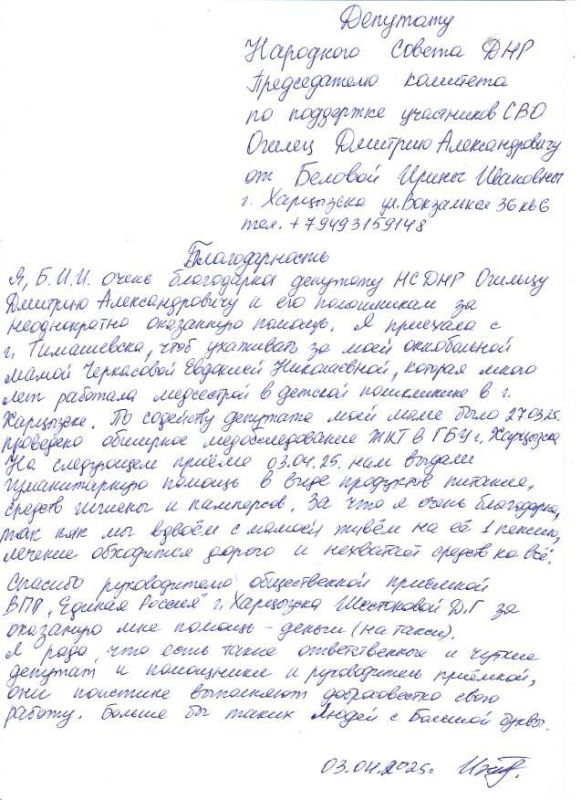 Депутату
Народного Совета ДНР
Председателю комитета
по поддержке участников СВО
Огилец Дмитрию Александровичу
от Беловой Ирины Ивановны
г. Харцызска ул. Вокзальная 36 кв 6
тел. +79493159148
Благодарность
Я, Б.И.И. очень благодарна депутату НС ДНР Огильцу
Дмитрию Александровичу и его помощникам за
неоднократно оказанную помощь. Я приехала с
г. Тимашевска, чтоб ухаживать за моей онкобольной
мамой Черкасовой Евдокией Николаевной, которая много
лет работала медсестрой в детской поликлинике в г.
Харцызске. По содейству депутата моей маме было 27.03.25.
проведено обширное медобследование ЖКТ в ГБУ г. Харцызска
На следующем приёме 03.04.25. нам выдали
гуманитарную помощь в виде продуктов питания,
средств гигиены и памперсов. За что я очень благодарна,
так как мы вдвоём с мамой живём на её 1 пенсию,
лечение обходится дорого и нехватает средств на всё.
Спасибо руководителю общественной приёмной
ВПП „Единая Россия" г. Харцызска Шестоковой Д.Г за
оказаную мне помощь - деньги (на такси).
Я рада, что есть такие ответственные и чуткие
депутат и помощники и руководитель приёмной,
они поистине выполняют добросовестно свою
работу. Больше бы таких Людей с Большой буквы.
03.04.2025г.